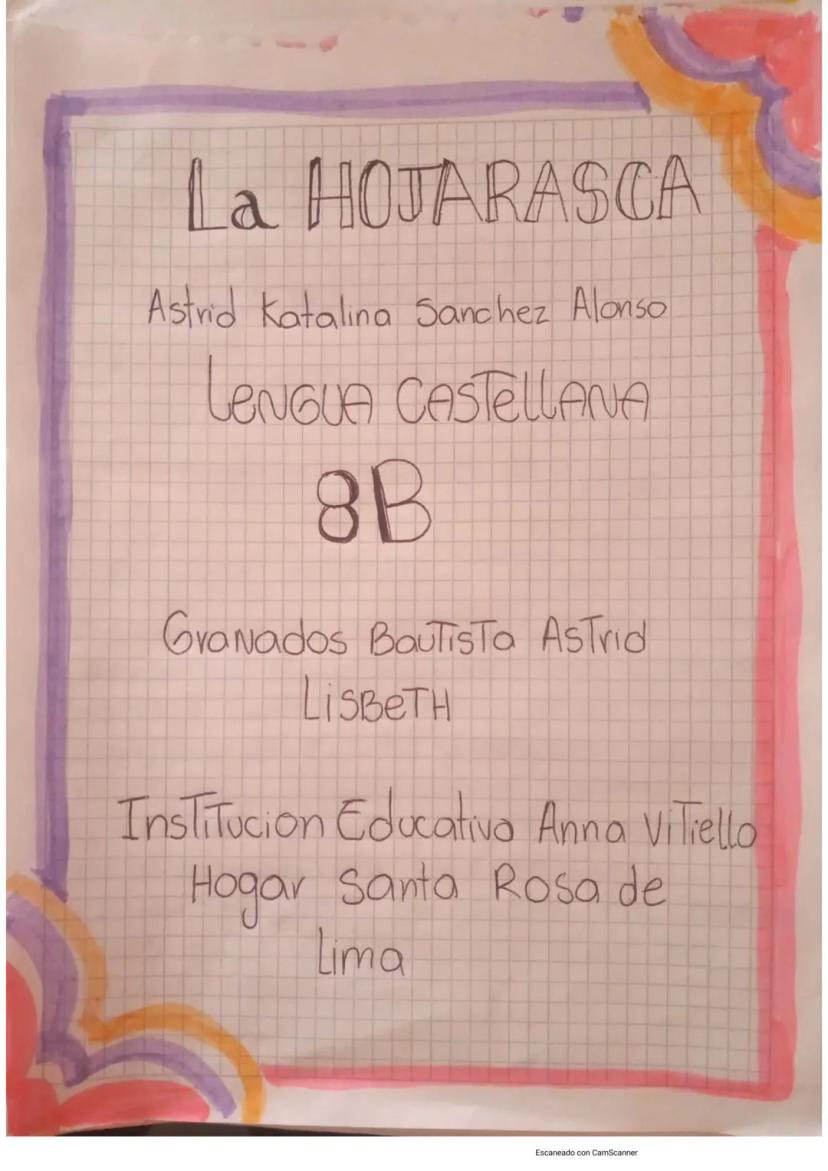 La HOJARASCA
Astrid Katalina Sanchez Alonso
LENGUA CASTELLANA
8B
Granados Bautista Astrid
Lisbeth
Institucion Educativa Anna Vitiello
Hogar Santa Rosa de
Lima
Escaneado con CamScanner